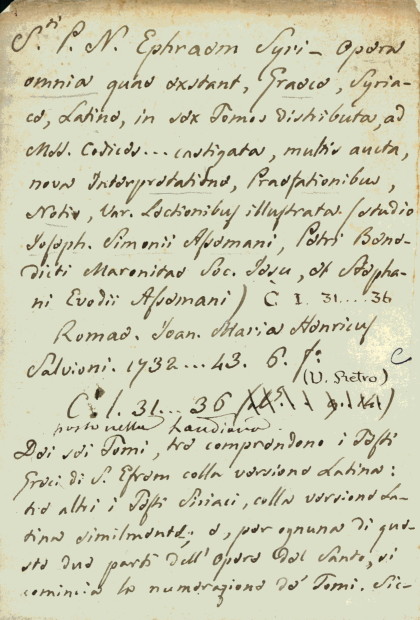 S.ti P. N. Ephraem Syri – Opera
omnia quae exstant, Graece, Syria-
ce, Latine, in sex Tomos distributa, ad
Mss. Codices... castigata, multis aucta,
nova Interpretatione, Praefationibus,
Notis, Var. Lectionibus illustrata (studio
Joseph. Simonii Assemani, Petri Bene-
dicti Maronitae Soc. Jesu, et Stepha-
ni Evodii Assemani) C. I. 31....36
Romae. Joan. Maria Henricus
Salvioni. 1732...43. 6. f.o
(V. Retro)
C. I. 31... 36
posto nella
Dei sei Tomi, tre comprendono i Testi
Greci di S. Efrem colla versione Latina:
tre altri i Testi Siriaci, colla versione La-
tina similmente; e, per ognuna di que-
ste due parti dell'Opere del Santo, si
comincia la numerazione de' Tomi. Sic-